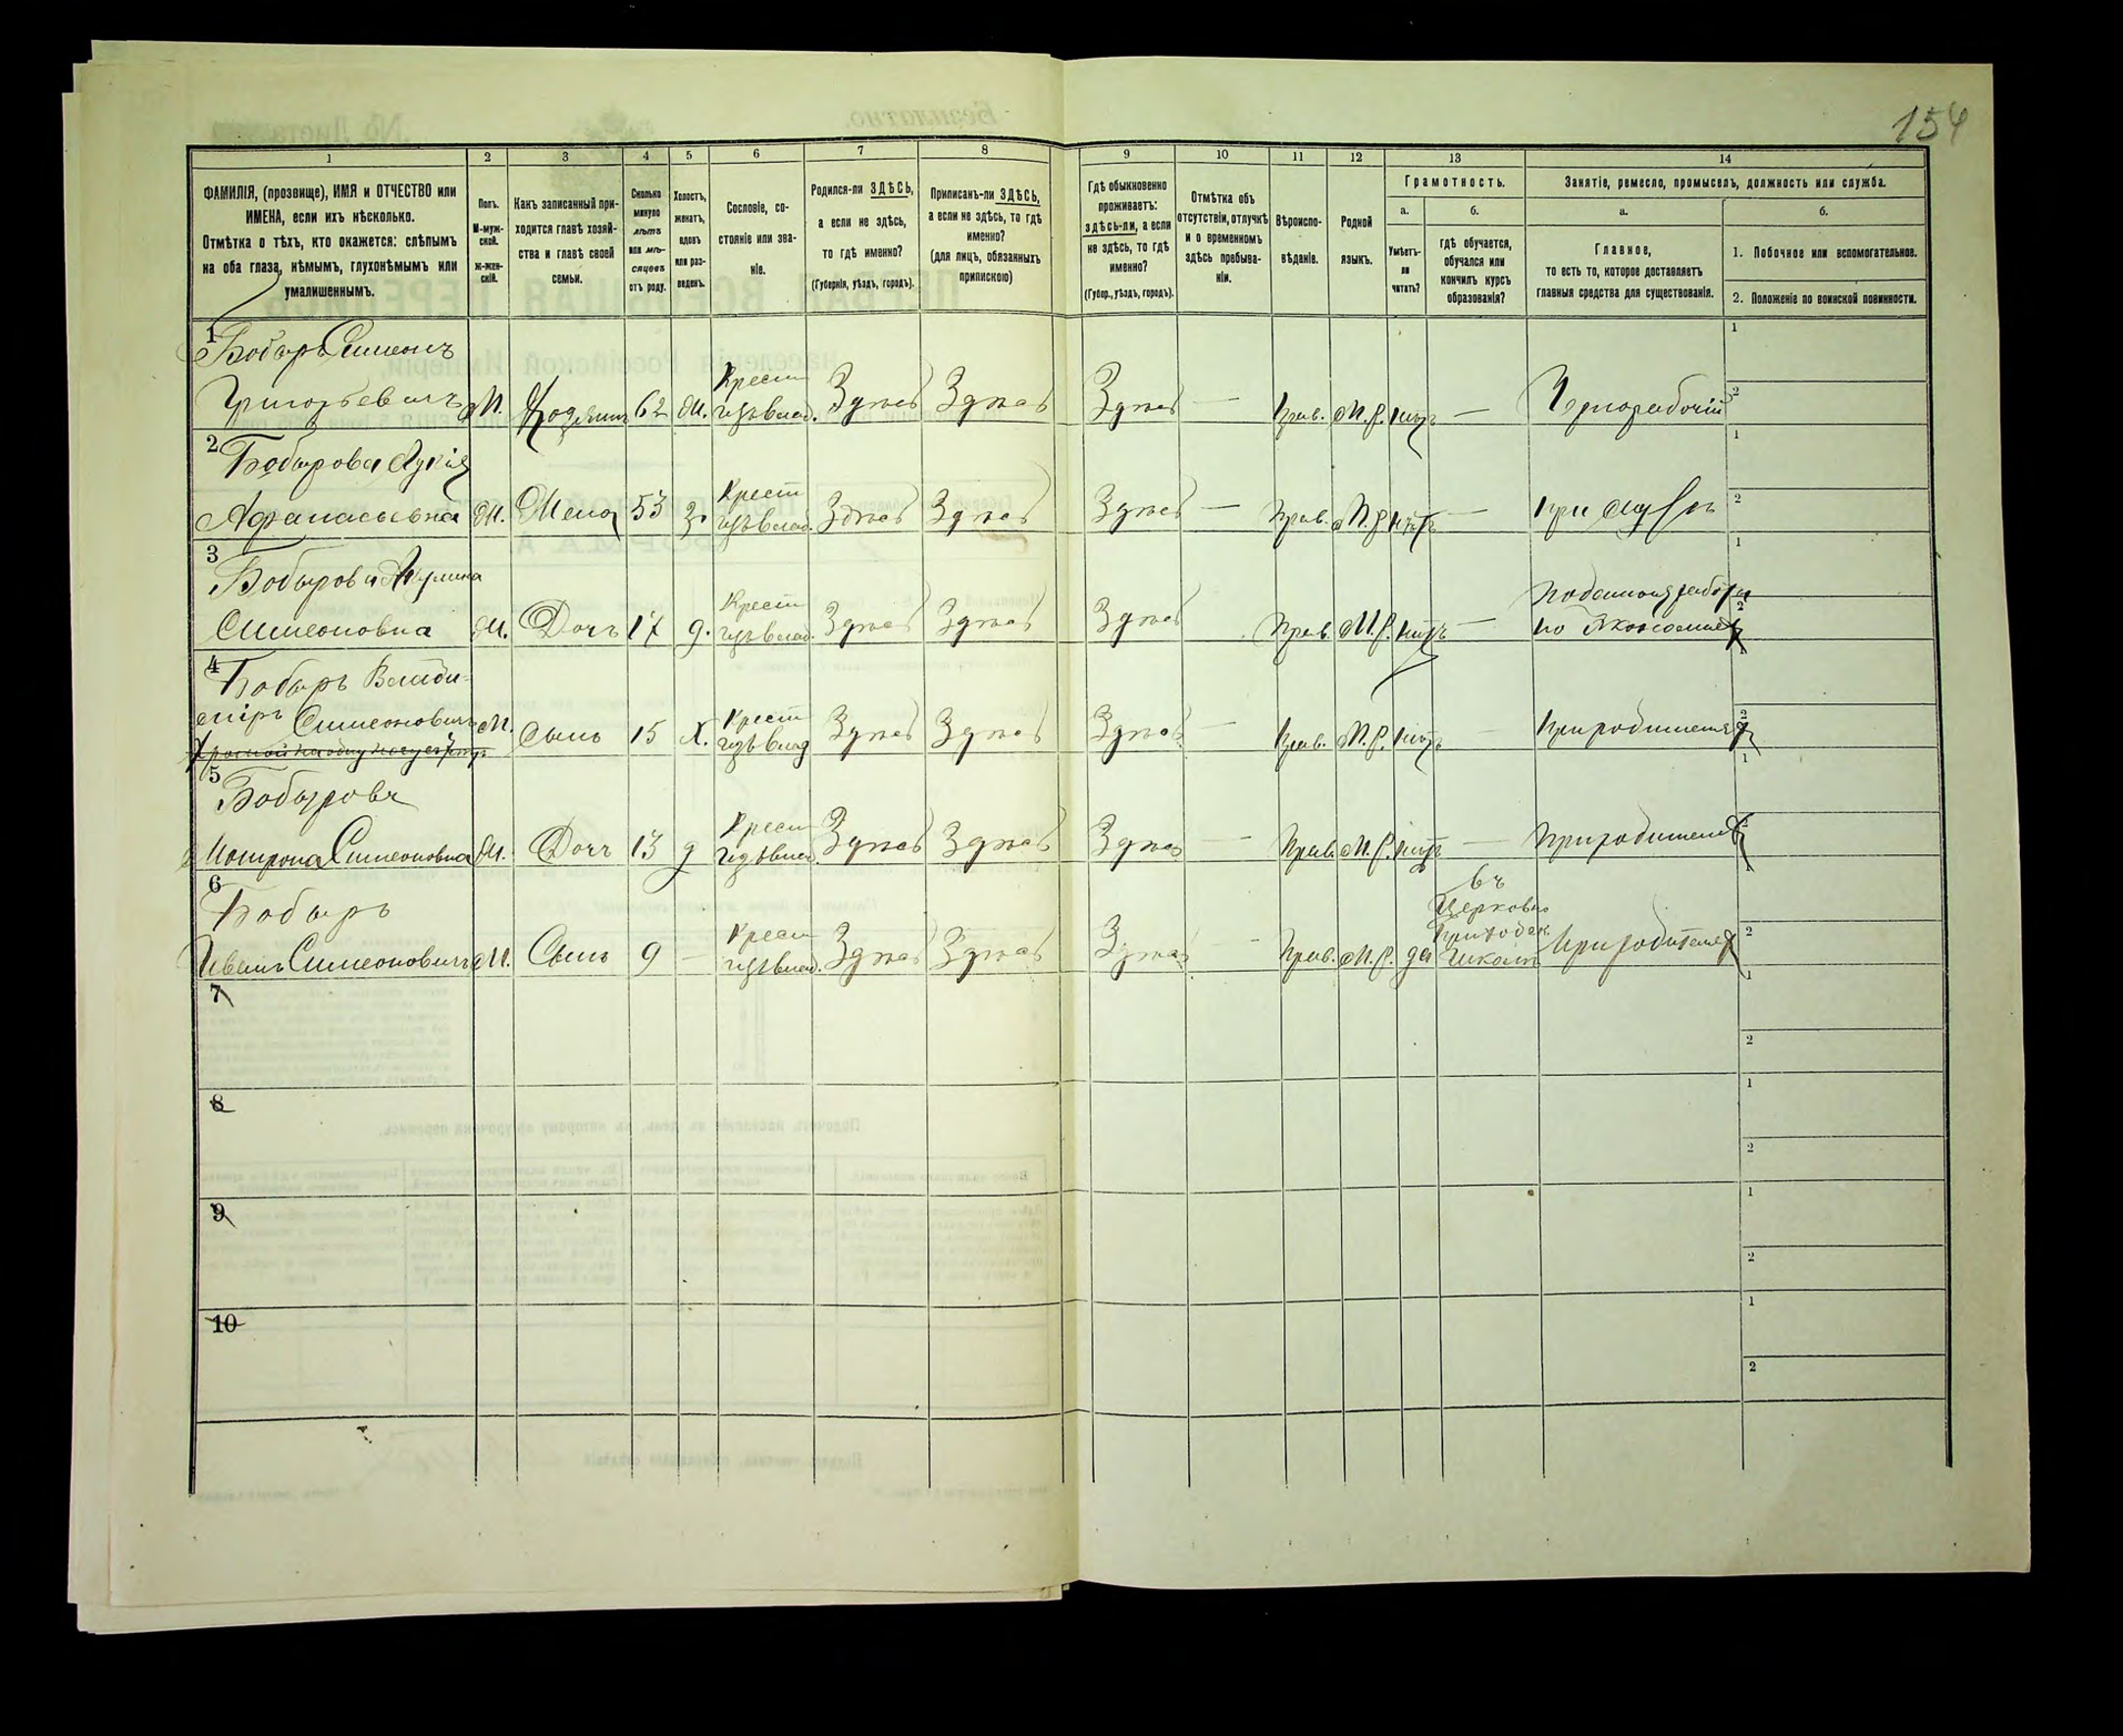 154
1 2 3 4 5 6 7 8 9 10 11 12 13 14
ФАМИЛІЯ, (прозвище), ИМЯ и ОТЧЕСТВО или
ИМЕНА, если ихъ нѣсколько.
Отмѣтка о тѣхъ, кто окажется: слѣпымъ
на оба глаза, нѣмымъ, глухонѣмымъ или
умалишеннымъ.
Полъ.
М-муж-
ской.
ж-жен-
скій.
Какъ записанный при-
ходится главѣ хозяй-
ства и главѣ своей
семьи.
Сколько
минуло
лѣтъ
или мѣ-
сяцевъ
отъ роду.
Холостъ,
женатъ,
вдовъ
или раз-
веденъ.
Сословіе, со-
стояніе или зва-
ніе.
Родился-ли ЗДѢСЬ,
а если не здѣсь,
то гдѣ именно?
(Губернія, уѣздъ, городъ).
Приписанъ-ли ЗДѢСЬ,
а если не здѣсь, то гдѣ
именно?
(для лицъ, обязанныхъ
припискою)
Гдѣ обыкновенно
проживаетъ:
здѣсь-ли, а если
не здѣсь, то гдѣ
именно?
(Губер., уѣздъ, городъ).
Отмѣтка объ
отсутствіи, отлучкѣ
и о временномъ
здѣсь пребыва-
ніи.
Вѣроиспо-
вѣданіе.
Родной
языкъ.
Грамотность.
а.
Умѣетъ-
ли
читать?
б.
гдѣ обучается,
обучался или
кончилъ курсъ
образованія?
Занятіе, ремесло, промыселъ, должность или служба.
а.
Главное,
то есть то, которое доставляетъ
главныя средства для существованія.
б.
1. Побочное или вспомогательное.
2. Положеніе по воинской повинности.
1
Бобырь Симеонъ
Григорьевичъ М. Хозяинъ 62 ж. Крест. Здѣсь Здѣсь Здѣсь — Прав. М.р. нѣтъ — Чернорабочій
2
Бобырова Лукія
Афанасьевна Ж. Жена 53 з. Крест. Здѣсь Здѣсь Здѣсь — Прав. М.р. нѣтъ — при мужѣ
3
Бобырова Акулина
Симеоновна Ж. Дочь 17 д. Крест. Здѣсь Здѣсь Здѣсь Прав. М.р. нѣтъ — Поденная работа
по Экономіи
4
Бобырь Влади-
міръ Симеоновичъ М. Сынъ 15 Х. Крест. Здѣсь Здѣсь Здѣсь — Прав. М.р. нѣтъ — При родителяхъ
5
Бобырова
Матрона Симеоновна Ж. Дочь 13 д Крест. Здѣсь Здѣсь Здѣсь — Прав. М.р. нѣтъ — При родителяхъ
6
Бобырь
Иванъ Симеоновичъ М. Сынъ 9 — Крест. Здѣсь Здѣсь Здѣсь — Прав. М.р. да
въ
Церковно
Приходск.
школѣ
При родителяхъ
7
8
9
10